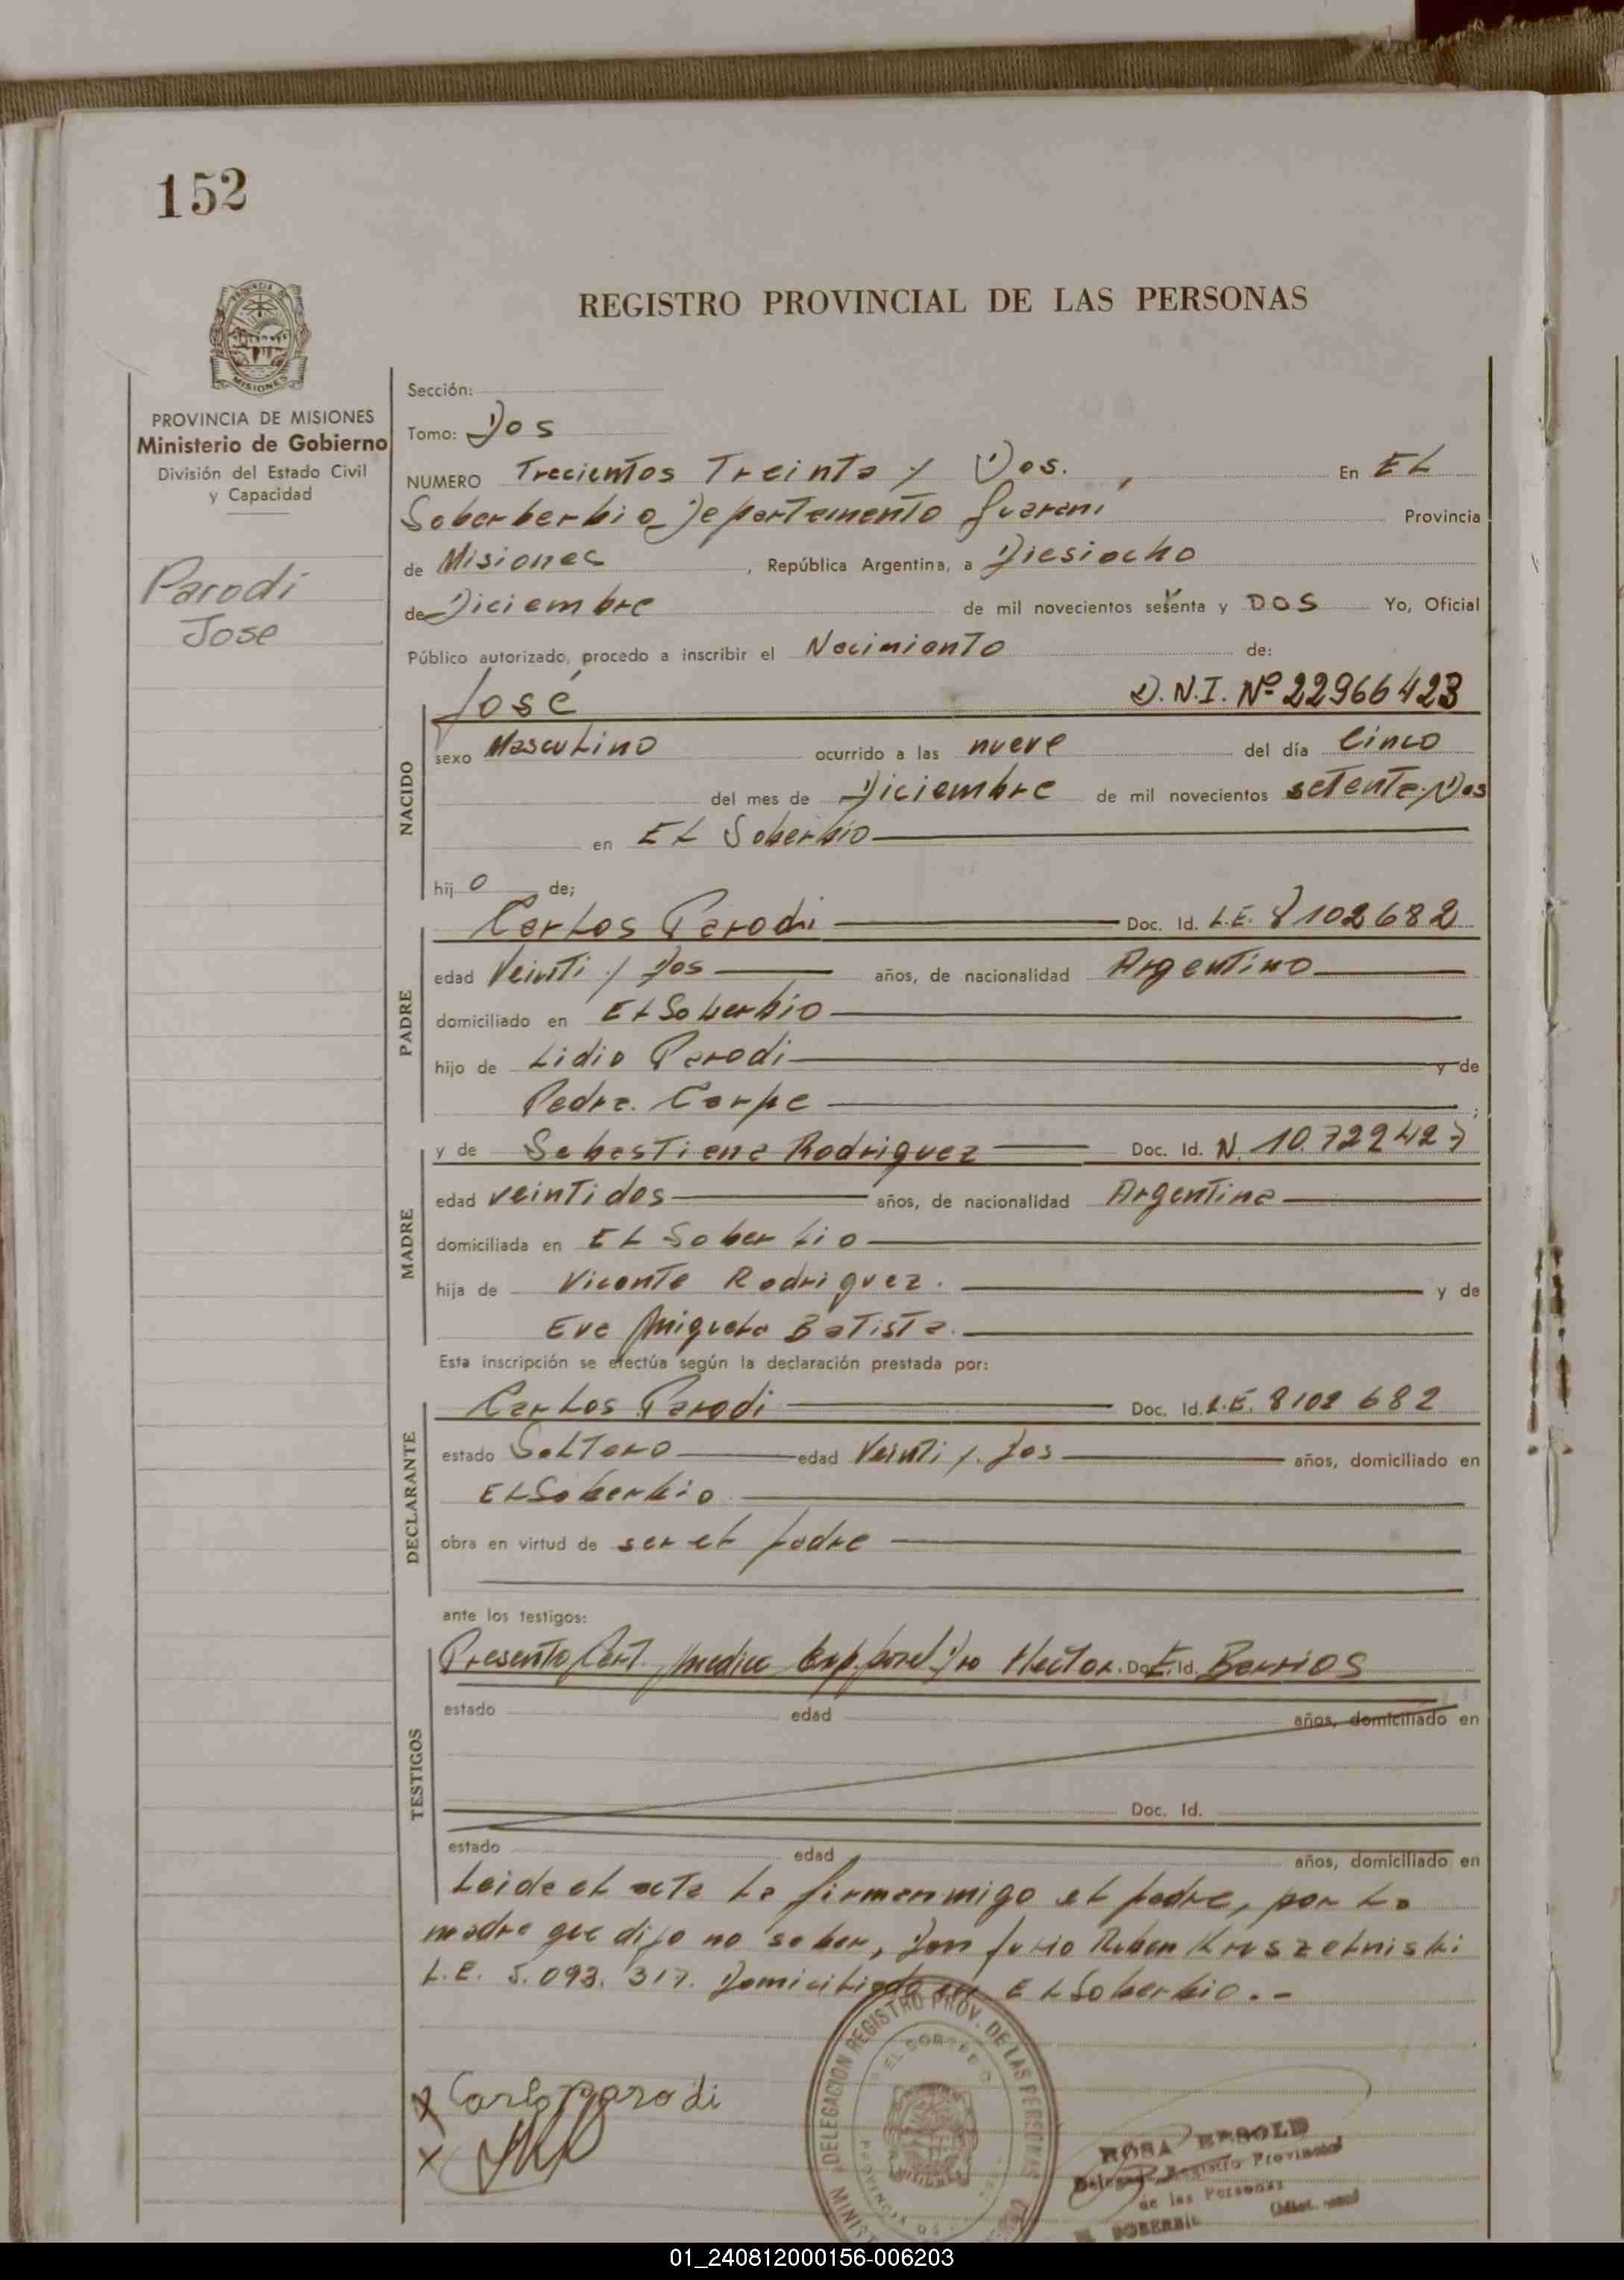 152
REGISTRO PROVINCIAL DE LAS PERSONAS
MISIONES
PROVINCIA DE MISIONES
Ministerio de Gobierno
División del Estado Civil
y Capacidad
Parodi
Jose
Sección:
Tomo: Dos
NUMERO Trecientos Treinta y Dos. En EL
Soberberbio Departamento Guarani Provincia
de Misiones, República Argentina, a Diesiocho
de Diciembre de mil novecientos setenta y DOS Yo, Oficial
Público autorizado, procedo a inscribir el Nacimiento de:
José D.N.I. Nº 22966423
NACIDO
sexo Masculino ocurrido a las nueve del día Cinco
del mes de Diciembre de mil novecientos setenta y Dos
en EL Soberbio
hij o de;
PADRE
Carlos Parodi Doc. Id. L.E. 8102682
edad Veinti y Dos años, de nacionalidad Argentino
domiciliado en EL Soberbio
hijo de Lidio Parodi y de
Pedra. Carpe ;
MADRE
y de Sebastiana Rodriguez Doc. Id. N. 10.722427
edad veintidos años, de nacionalidad Argentina
domiciliada en EL Soberbio
hija de Vicente Rodriguez. y de
Eva Miguela Batista.
Esta inscripción se efectúa según la declaración prestada por:
DECLARANTE
Carlos Parodi Doc. Id. L.E. 8102 682
estado Soltero edad Veinti y Dos años, domiciliado en
EL Soberbio
obra en virtud de ser el padre
ante los testigos:
TESTIGOS
Presento Cert. Medico Exp. por el Dro Hector. E. Doc. Id. Berrios
estado edad años, domiciliado en
Doc. Id.
estado edad años, domiciliado en
Leida el acta La firman migo el padre, por La
madre que dijo no saber, Don Julio Ruben
L.E. 5.093.317. Domiciliado en EL Soberbio.-
x Carlo parodi
x
DELEGACION REGISTRO PROV. DE LAS PERSONAS
EL SOBERBIO
PROVINCIA
MISIONES
ROSA
Delegada Registro Provincial
de las Personas
SOBERBIO
01_240812000156-006203